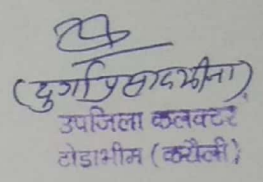 (दुर्गाप्रसाद मीना)
उपजिला कलक्टर,
टोडाभीम (करौली)